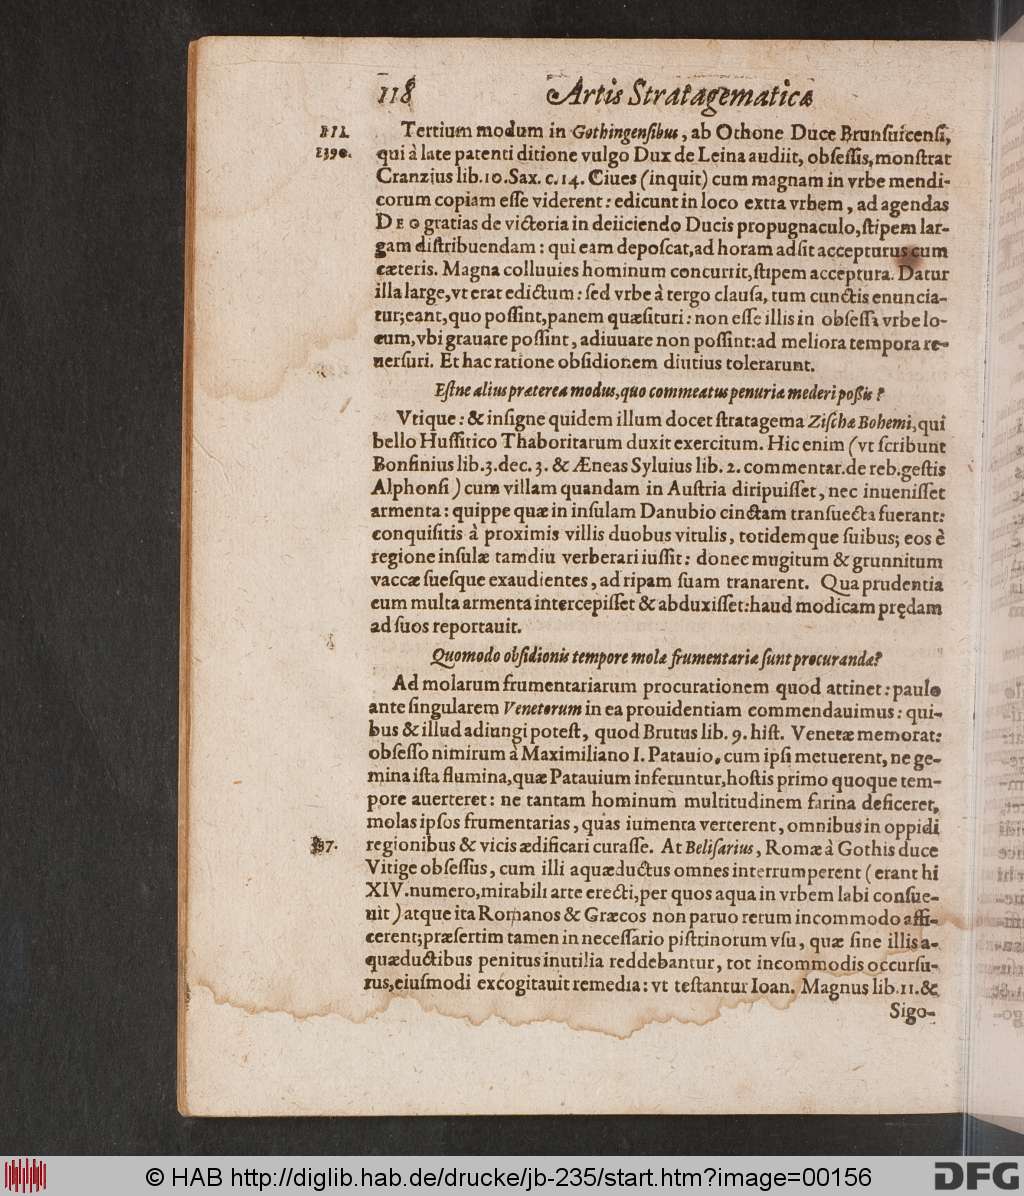 118 Artis Stratagematicæ
III. Tertium modum in Gothingensibus, ab Othone Duce Brunsuicensi,
1390. qui à late patenti ditione vulgo Dux de Leina audiit, obsessis, monstrat
Cranzius lib. 10. Sax. c. 14. Ciues (inquit) cum magnam in vrbe mendi-
corum copiam esse viderent: edicunt in loco extra vrbem, ad agendas
DEO gratias de victoria in deiiciendo Ducis propugnaculo, stipem lar-
gam distribuendam: qui eam deposcat, ad horam adsit accepturus cum
cæteris. Magna colluuies hominum concurrit, stipem acceptura. Datur
illa large, vt erat edictum: sed vrbe à tergo clausa, tum cunctis enuncia-
tur; eant, quo possint, panem quæsituri: non esse illis in obsessa vrbe lo-
cum, vbi grauare possint, adiuuare non possint: ad meliora tempora re-
uersuri. Et hac ratione obsidionem diutius tolerarunt.
Estne alius præterea modus, quo commeatus penuriæ mederi possis?
Vtique: & insigne quidem illum docet stratagema Zischæ Bohemi, qui
bello Hussitico Thaboritarum duxit exercitum. Hic enim (vt scribunt
Bonfinius lib. 3. dec. 3. & Æneas Syluius lib. 2. commentar. de reb. gestis
Alphonsi) cum villam quandam in Austria diripuisset, nec inuenisset
armenta: quippe quæ in insulam Danubio cinctam transuecta fuerant:
conquisitis à proximis villis duobus vitulis, totidemque suibus; eos è
regione insulæ tamdiu verberari iussit: donec mugitum & grunnitum
vaccæ suesque exaudientes, ad ripam suam tranarent. Qua prudentia
cum multa armenta intercepisset & abduxisset: haud modicam prędam
ad suos reportauit.
Quomodo obsidionis tempore molæ frumentariæ sunt procurandæ?
Ad molarum frumentariarum procurationem quod attinet: paulo
ante singularem Venetorum in ea prouidentiam commendauimus: qui-
bus & illud adiungi potest, quod Brutus lib. 9. hist. Venetæ memorat:
obsesso nimirum à Maximiliano I. Patauio, cum ipsi metuerent, ne ge-
mina ista flumina, quæ Patauium inferuntur, hostis primo quoque tem-
pore auerteret: ne tantam hominum multitudinem farina deficeret,
molas ipsos frumentarias, quas iumenta verterent, omnibus in oppidi
regionibus & vicis ædificari curasse. At Belisarius, Romæ à Gothis duce
Vitige obsessus, cum illi aquæductus omnes interrumperent (erant hi
XIV. numero, mirabili arte erecti, per quos aqua in vrbem labi consue-
uit) atque ita Romanos & Græcos non paruo rerum incommodo affi-
cerent; præsertim tamen in necessario pistrinorum vsu, quæ sine illis a-
quæductibus penitus inutilia reddebantur, tot incommodis occursu-
rus, eiusmodi excogitauit remedia: vt testantur Ioan. Magnus lib. 11. &
Sigo-
© HAB http://diglib.hab.de/drucke/jb-235/start.htm?image=00156
DFG